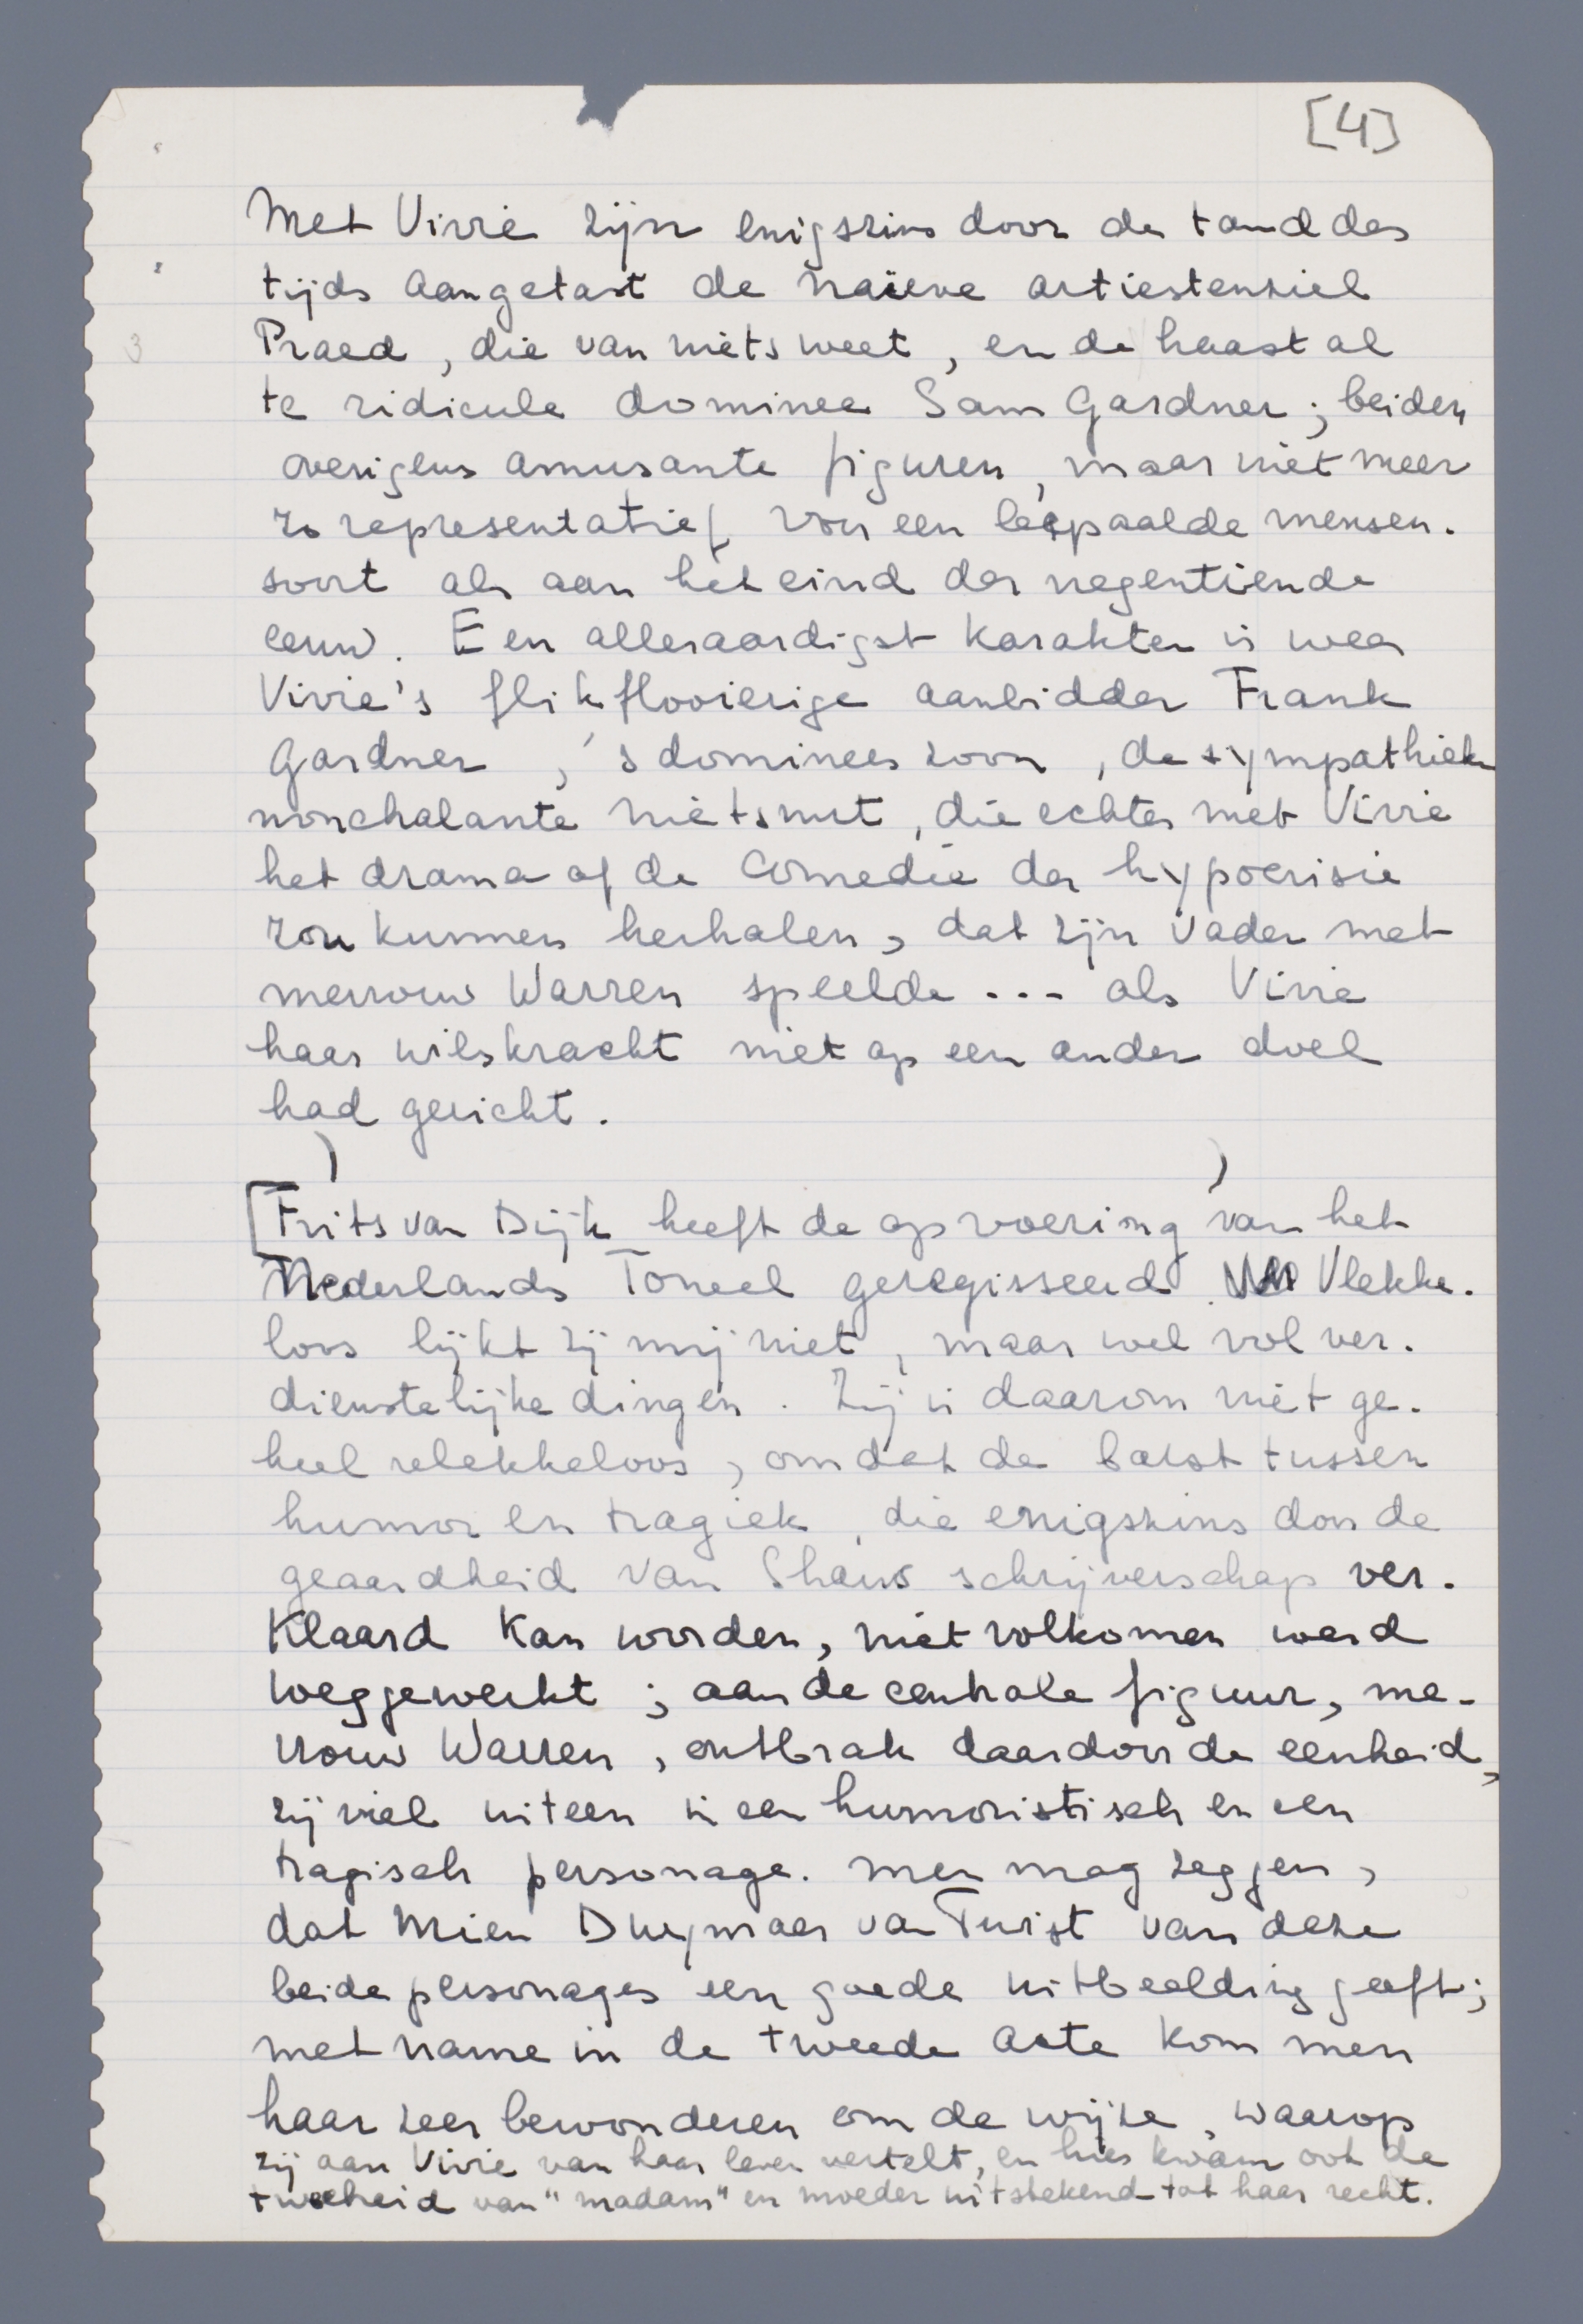 [4]
Met Vivie zijn enigszins door de tand des
tijds aangetast de naieve artiestenziel
Praed, die van niets weet, en de haast al
te ridicule dominee Sam Gardner; beiden
overigens amusante figuren, maar niet meer
zo representatief voor een bepaalde mensen-
soort als aan het eind der negentiende
eeuw. Een alleraardigst karakter is weer
Vivie's flikflooierige aanbidder Frank
Gardner, 's dominees zoon, de sympathieke
nonchalante nietsnut, die echter met Vivie
het drama of de comedie der hypocrisie
zou kunnen herhalen, dat zijn vader met
mevrouw Warren speelde ... als Vivie
haar wilskracht niet op een ander doel
had gericht.
[Frits van Dijk heeft de opvoering van het
Nederlands Toneel geregisseerd. Vlekke-
loos lijkt zij mij niet, maar wel vol ver-
dienstelijke dingen. Zij is daarom niet ge-
heel vlekkeloos, omdat de barst tussen
humor en tragiek, die enigszins door de
geaardheid van Shaws schrijverschap ver-
klaard kan worden, niet volkomen werd
weggewerkt; aan de centrale figuur, me-
vrouw Warren, ontbrak daardoor de eenheid,
zij viel uiteen in een humoristisch en een
tragisch personage. Men mag zeggen,
dat Mien Duymaer van Twist van deze
beide personages een goede uitbeelding geeft;
met name in de tweede acte kon men
haar zeer bewonderen om de wijze, waarop
zij aan Vivie van haar leven vertelt, en hier kwam ook de
tweeheid van "madam" en moeder uitstekend tot haar recht.